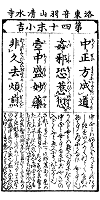 洛東音羽山清水寺
第四十末小吉
中正方成道
姦邪恐惹愆
壺中盛妙藥
非久去煩前